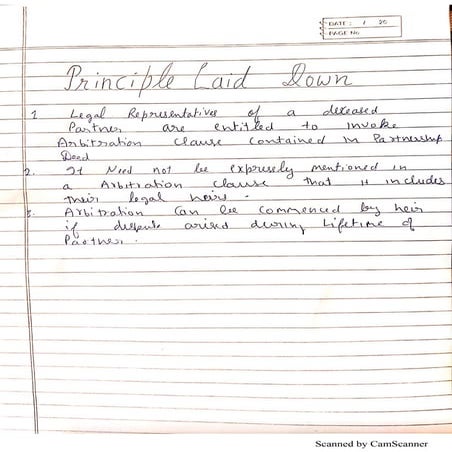 DATE: / 20
PAGE No.
Principle Laid Down
1 Legal Representatives of a deceased
Partner are entitled to invoke
Arbitration clause contained in Partnership
Deed
2. It Need not be expressely mentioned in
a Arbitration clause that it includes
their legal heirs.
3. Arbitration can be commenced by heir
if despute arised during Lifetime of
Partner.
Scanned by CamScanner